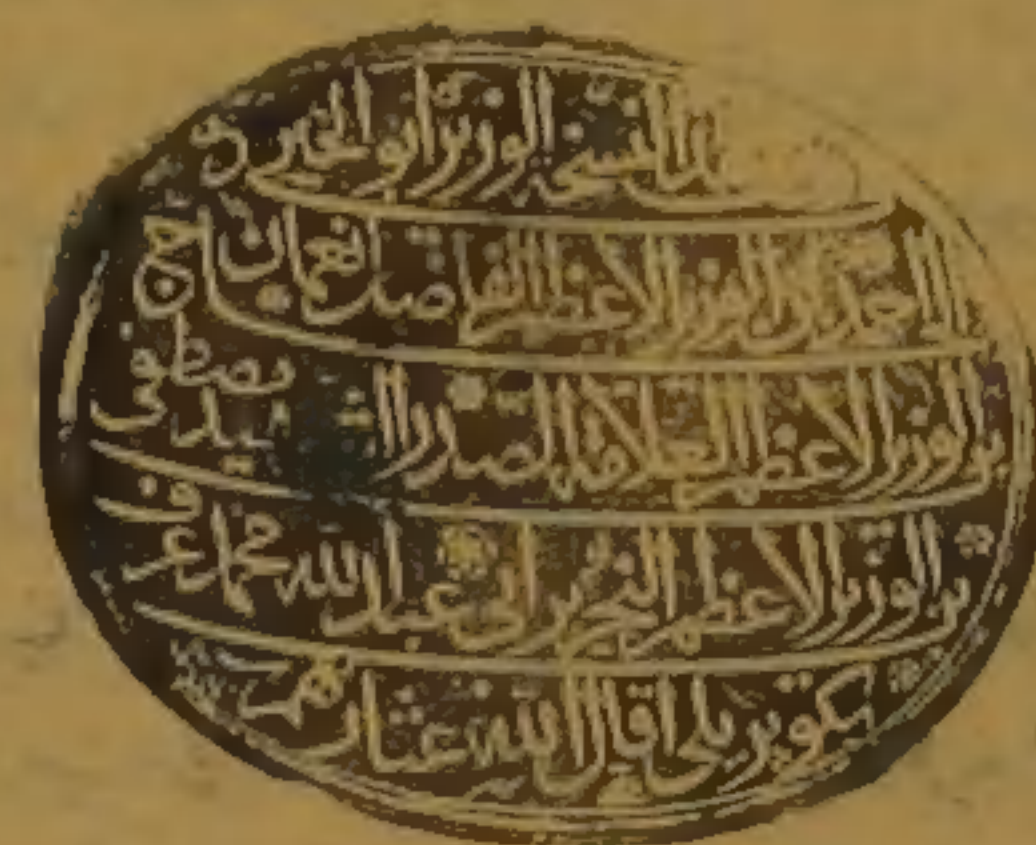 النسخة الوزير ابو الخير
الحاج احمد ابن الوزير الاعظم الفاضل نعمان
بن الوزير الاعظم العلامة الصدر الشهيد مصطفى
بن الوزير الاعظم النحرير ابي عبد الله محمد عرف
بكوپريلي اقال الله عثارهم